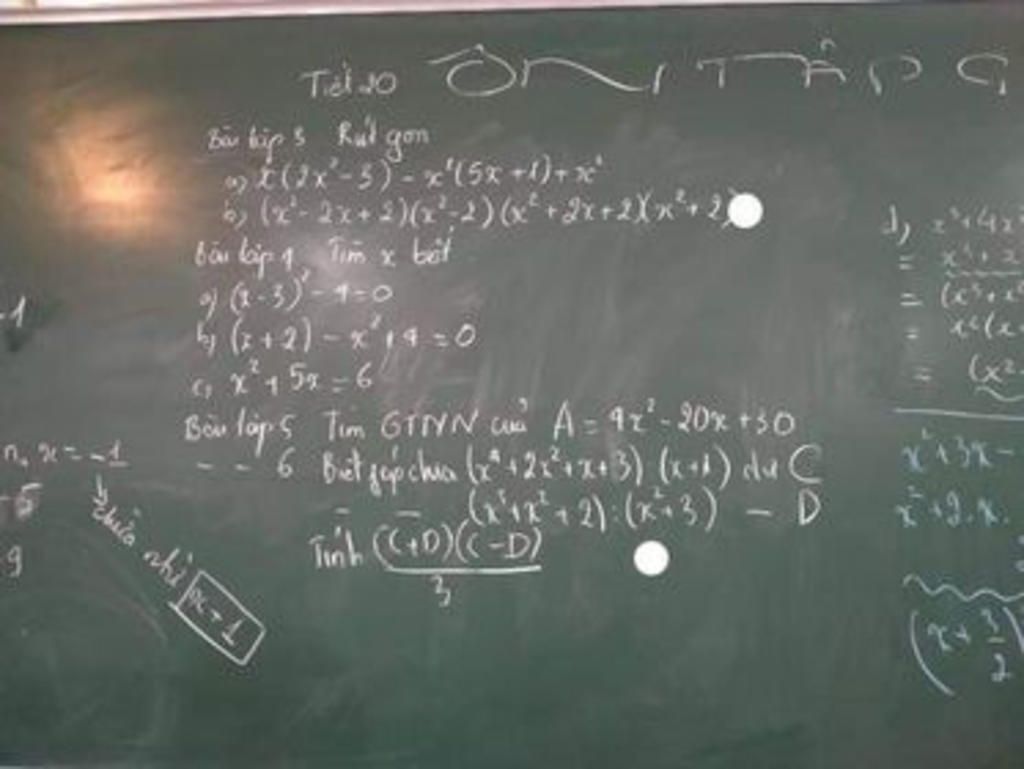 Tiết 20 ÔN TẬP C
Bài tập 3 Rút gọn
a) x(2x² - 3) - x²(5x + 1) + x²
b) (x² - 2x + 2)(x² - 2)(x² + 2x + 2)(x² + 2)
Bài tập 4 Tìm x biết
a) (x - 3)² - 4 = 0
b) (x + 2) - x² + 4 = 0
c) x² + 5x = 6
Bài tập 5 Tìm GTNN của A = 4x² - 20x + 30
- - - 6 Biết phép chia (x⁴ + 2x² + x + 3) : (x + 1) dư C
- - (x³ + x² + 2) : (x² + 3) - D
Tính (C+D)(C-D)
3
-1
n, x = -1
-5
9
x = 1
d) x³ + 4x²
=
= (x³ + x²
= x²(x
= (x² -
x² + 3x -
x² + 2.x.
(x + 3/2)